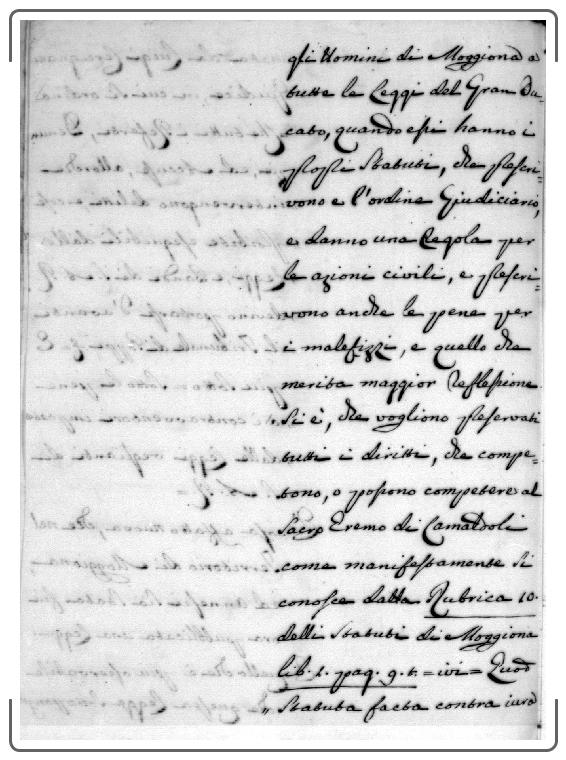 gli Uomini di Moggiona a
tutte le Leggi del Gran Du-
cato, quando essi hanno i
proprj Statuti, che prescri-
vono e l'ordine Giudiciario,
e danno una Regola per
le azioni civili, e prescri-
vono anche le pene per
i malefizzi, e quello che
merita maggior Reflessione
si è, che vogliono preservati
tutti i diritti, che compe-
tono, o possono competere al
Sacro Eremo di Camaldoli
come manifestamente si
conosce dalla Rubrica 10.
delli Statuti di Moggiona
lib. 1. pag. 9. t. = ivi = Quod
„ Statuta facta contra iura